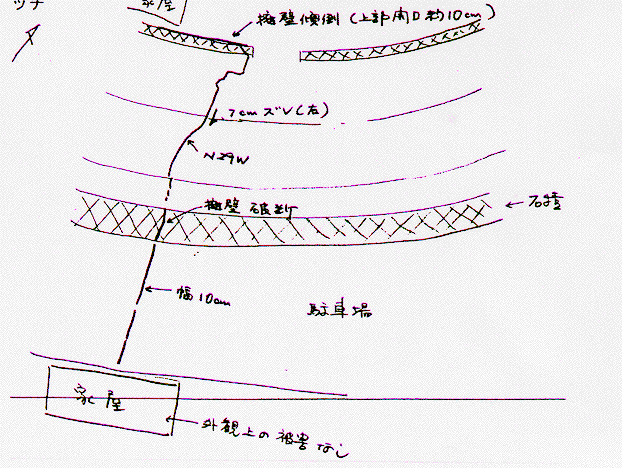 ッチ
家屋
擁壁傾倒(上部開口約10cm)
7cmズレ(左)
N29W
擁壁破断
石積
幅10cm
駐車場
家屋
外観上の被害なし